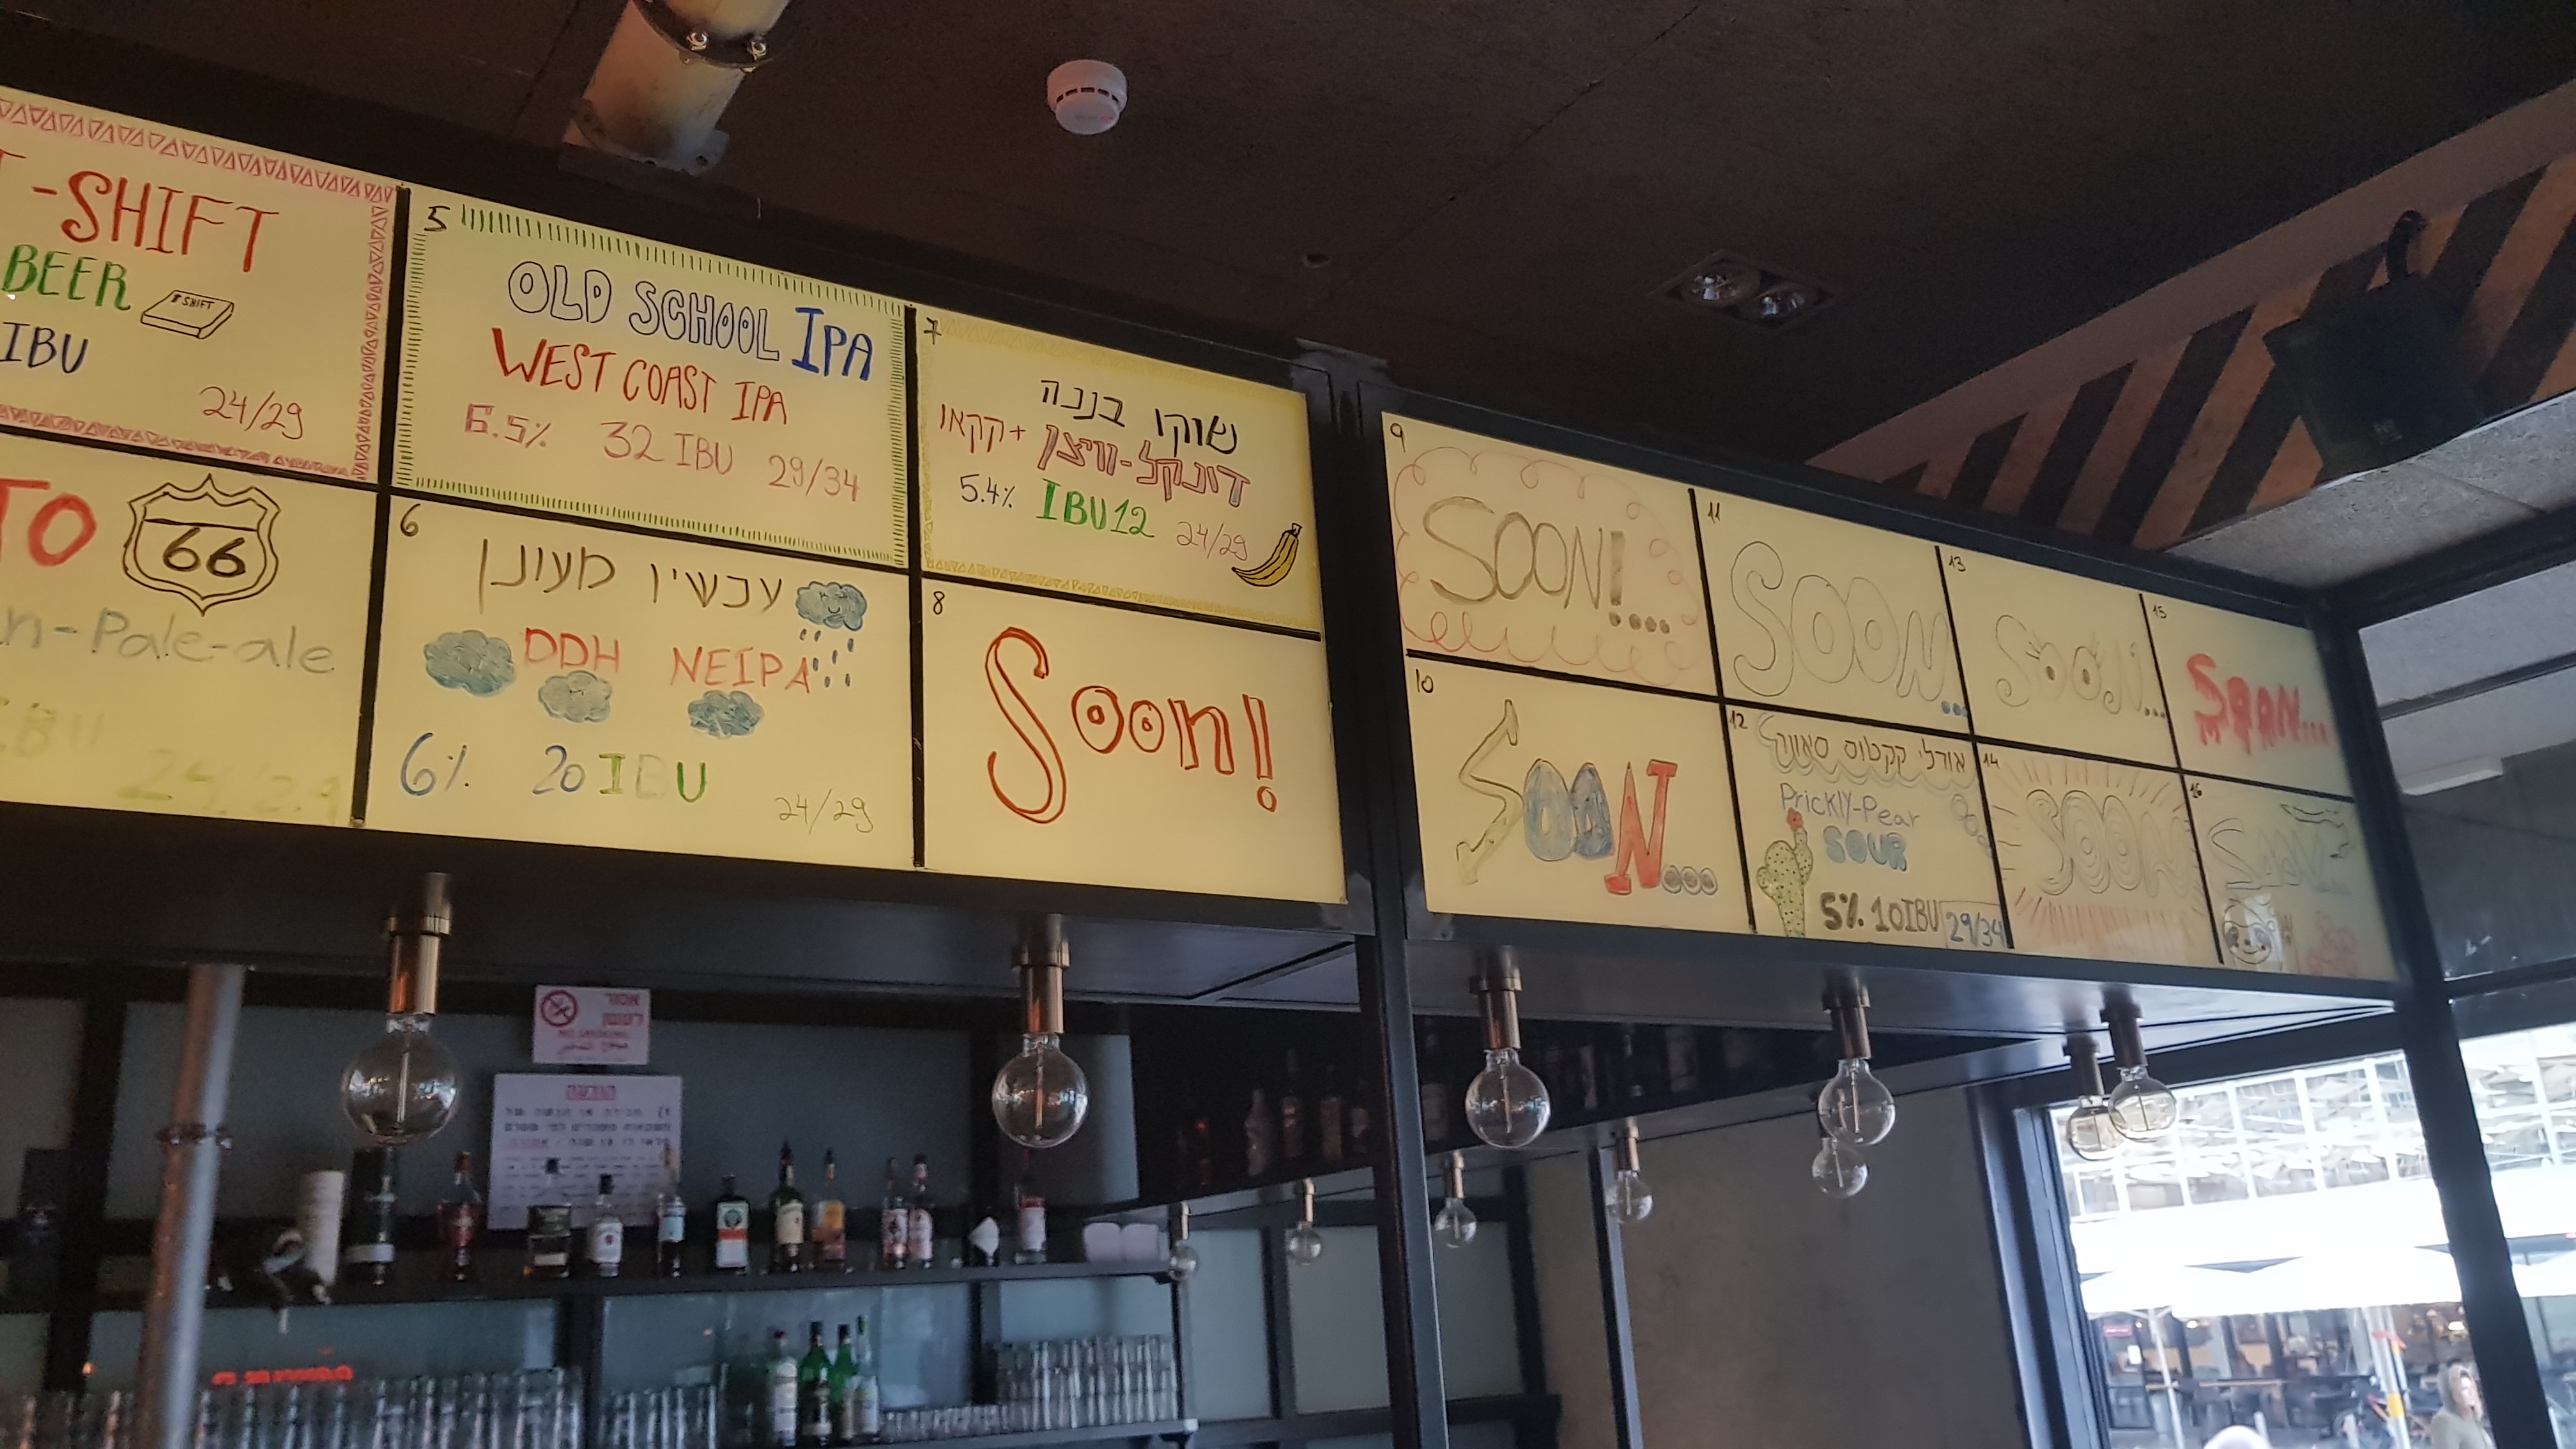 -SHIFT
BEER
SHIFT
IBU
24/29
TO
66
n-Pale-ale
IBU
24/29
5
OLD SCHOOL IPA
WEST COAST IPA
6.5% 32 IBU 29/34
6
עכשיו מעונן
DDH NEIPA
6% 20 IBU
24/29
7
שוקו בננה
דונקל-וויצן + קקאו
5.4% IBU12 24/29
8
Soon!
9
SOON!...
10
SOON...
11
SOON...
12
אורלי קקטוס סאוור
Prickly-Pear
SOUR
5% 10IBU 29/34
13
SOON...
14
SOON
15
SOON...
16
SOON...
אסור
לעשן
NO SMOKING
ممنوع التدخين
הודעה